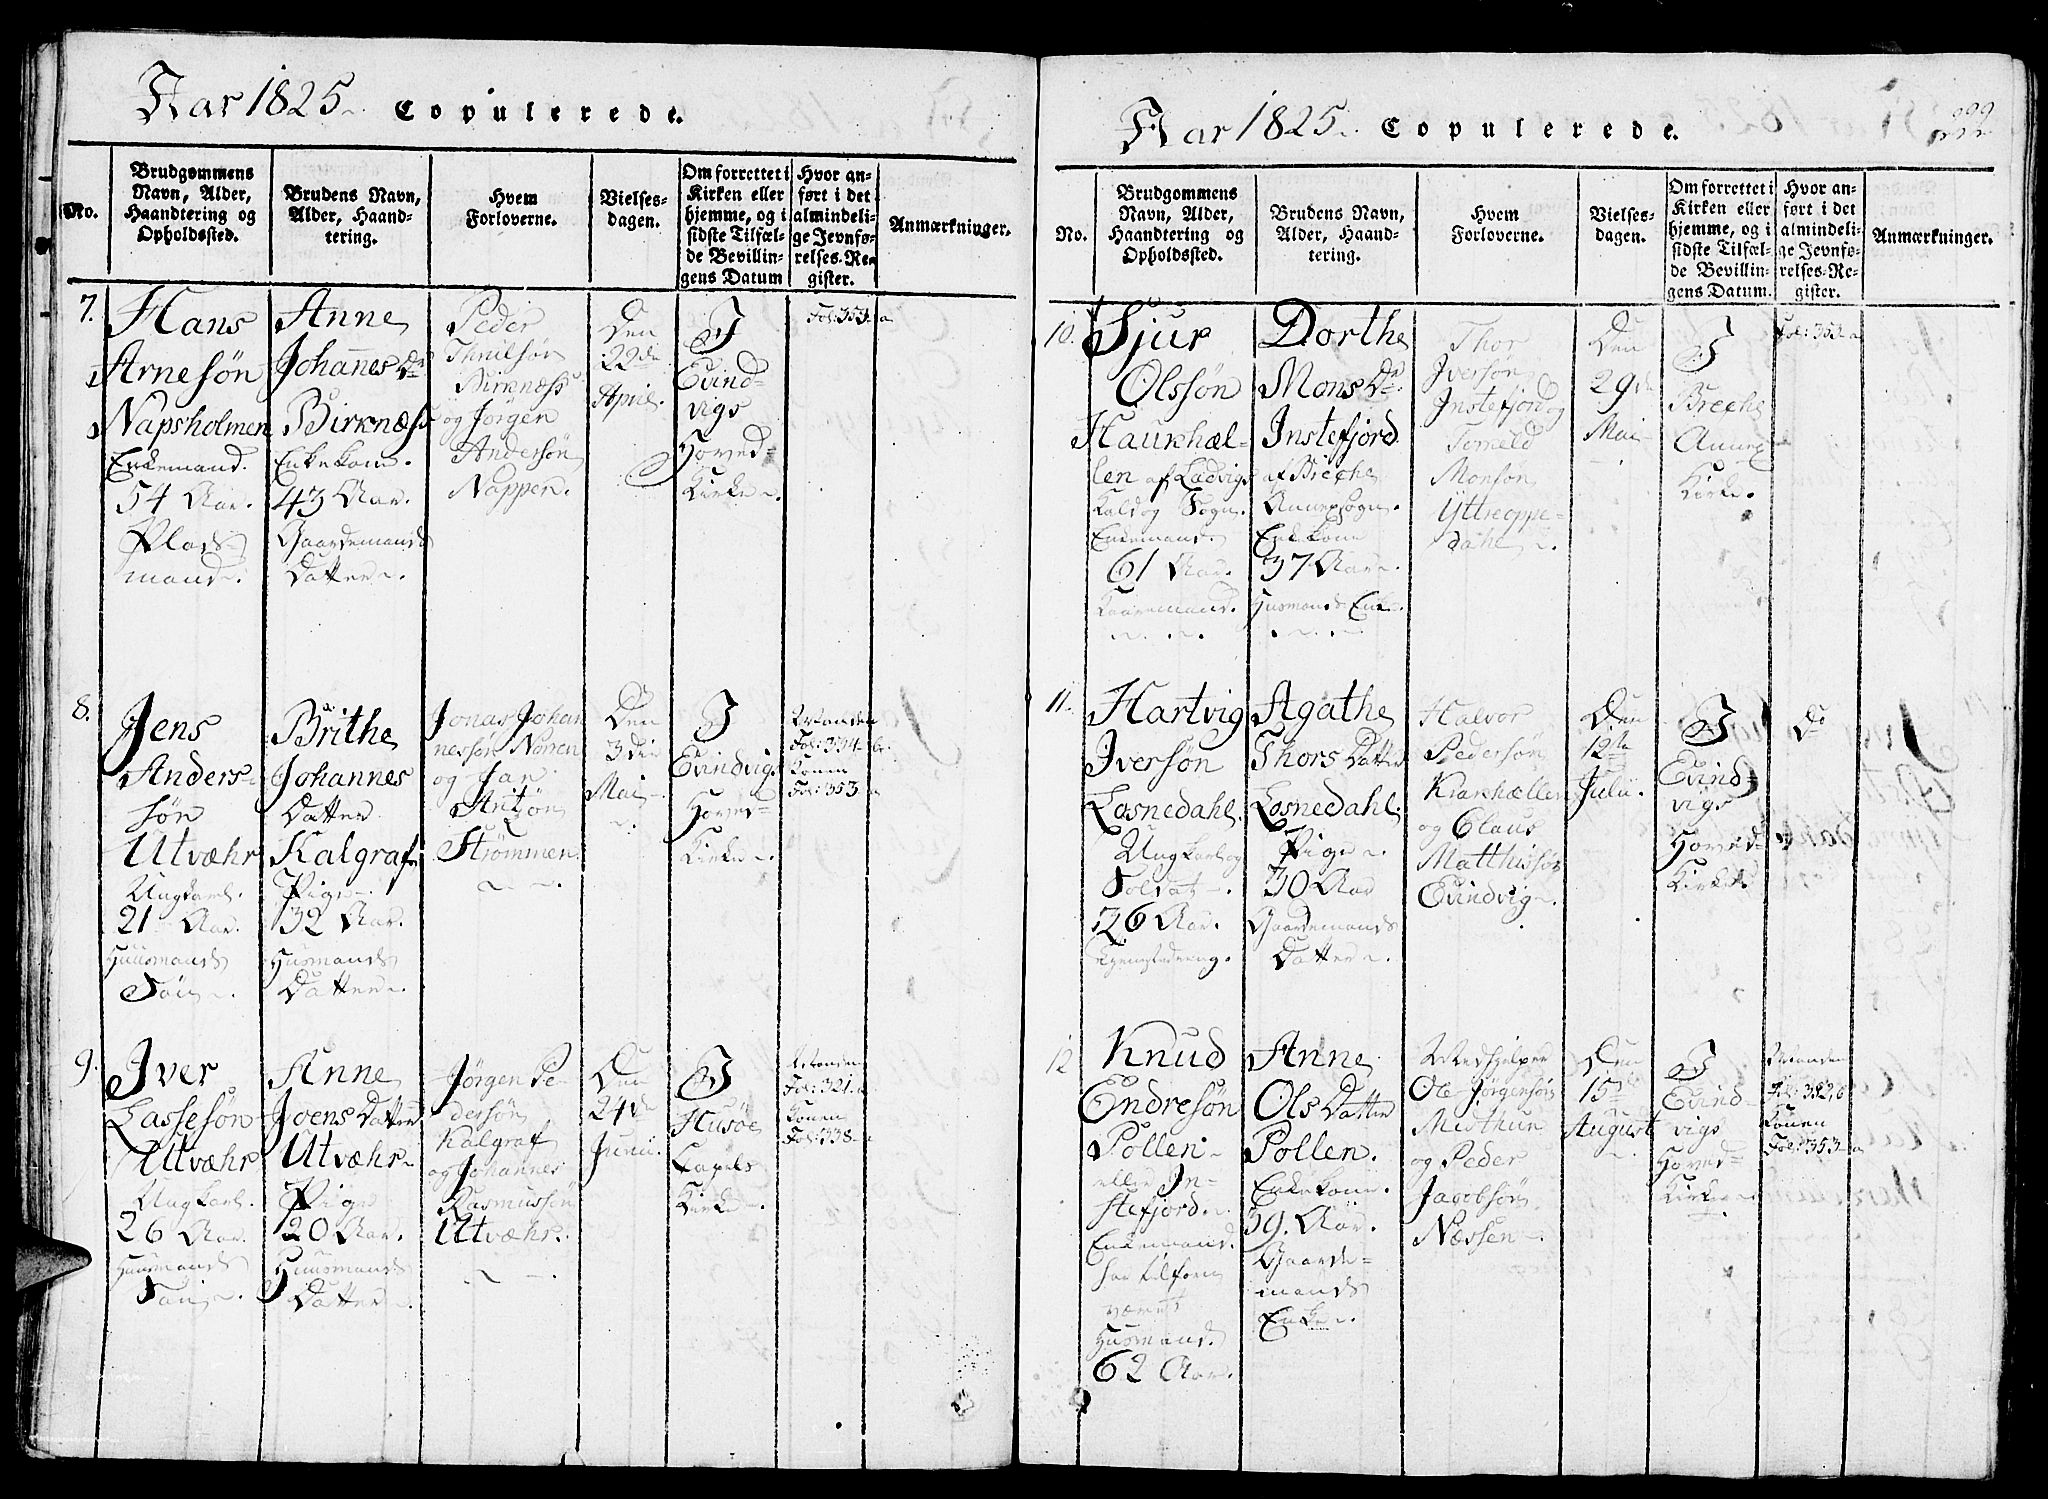 Aar 1825. Copulerede.
No.
Brudgommens
Navn, Alder,
Haandtering og
Opholdssted.
Brudens Navn,
Alder, Haand-
tering.
Hvem
Forloverne.
Vielses-
dagen.
Om forrettet i
Kirken eller
hjemme, og i
sidste Tilfæl-
de Bevillin-
gens Datum
Hvor an-
ført i det
almindeli-
ge Jevnfø-
relses-Re-
gister.
Anmærkninger.
7.
Hans
Arnesøn
Napsholmen
Enkemand.
54 Aar.
Plads-
mand.
Anne
Johannes Dr
Birknæss
Enkekone.
43 Aar.
Gaardemands
Datter.
Peder
Birknæss
og Jørgen
Andersøn
Nappen.
Den
22de
April.
I
Evind-
vigs
Hoved-
Kirke.
Fol: 353-a
8.
Jens
Anders-
søn
Utvæhr
Ungkarl.
21 Aar.
Huusmands
Søn.
Brithe
Johannes
Datter
Kalgraf
Pige.
32 Aar.
Husmands
Datter.
Jonas Johan
nessøn Noreen
og Jan
Antøn
Strømmen.
Den
3die
Mai
I
Evindvigs
Hoved-
Kirke.
Manden
Fol: 334-b.
Konen
Fol: 353-a
9.
Iver
Lassesøn
Utvæhr
Ungkarl.
26 Aar.
Huusmands
Søn.
Anne
Joens Datter
Utvæhr
Pige
20 Aar.
Huusmands
Datter.
Jørgen Pe-
dersøn
Kalgraf
og Johannes
Rasmussøn
Utvæhr.
Den
24de
Junii.
I
Husøe
Capels
Kirke.
Manden
Fol: 321.a
Konen
Fol: 338-a
Aar 1825. Copulerede.
No.
Brudgommens
Navn, Alder,
Haandtering og
Opholdssted.
Brudens Navn,
Alder, Haand-
tering.
Hvem
Forloverne.
Vielses-
dagen.
Om forrettet i
Kirken eller
hjemme, og i
sidste Tilfæl-
de Bevillin-
gens Datum.
Hvor an-
ført i det
almindeli-
ge Jevnfø-
relses-Re-
gister.
Anmærkninger.
10.
Sjur
Olssøn
Haukhæl-
len af Ladvigs
Kald og Sogn.
Enkemand.
61 Aar.
Kaaremand.
Dorthe
Mons Dr.
Instefjord
af Brejche
Annexsogn.
Enkekone
37 Aar.
Husmands Enke.
Thor
Iversøn
Instefjord og
Monsøn
Yttreoppe-
dahl.
Den
29de
Mai
I
Breche
Annex
Kirke.
Fol: 353-a
11.
Hartvig
Iversøn
Losnedahl.
Ungkarl og
Soldat.
36 Aar.
Agathe
Thors Datter
Losnedahl.
Pige.
30 Aar
Gaardemands
Datter.
Halvor
Pedersøn
Krakhællen
og Claus
Matthissøn
Evindvig.
Den
12te
Julii.
I
Evind-
vigs
Hoved-
Kirke.
Do
12
Knud
Endresøn
Pollen
eller In-
stefjord.
Enkemand.
har tilforn
været
Husmand.
62 Aar.
Anne
Ols Datter
Pollen.
Enkekone.
39. Aar.
Gaarde-
mands
Enke.
Medhjelper
Ole Jørgensøn
Midthun
og Peder
Jacobsøn
Næssen.
Den
15de
August
I
Evind
vigs
Hoved-
Kirke.
Manden
Fol: 352,b
Konen
Fol: 353-a